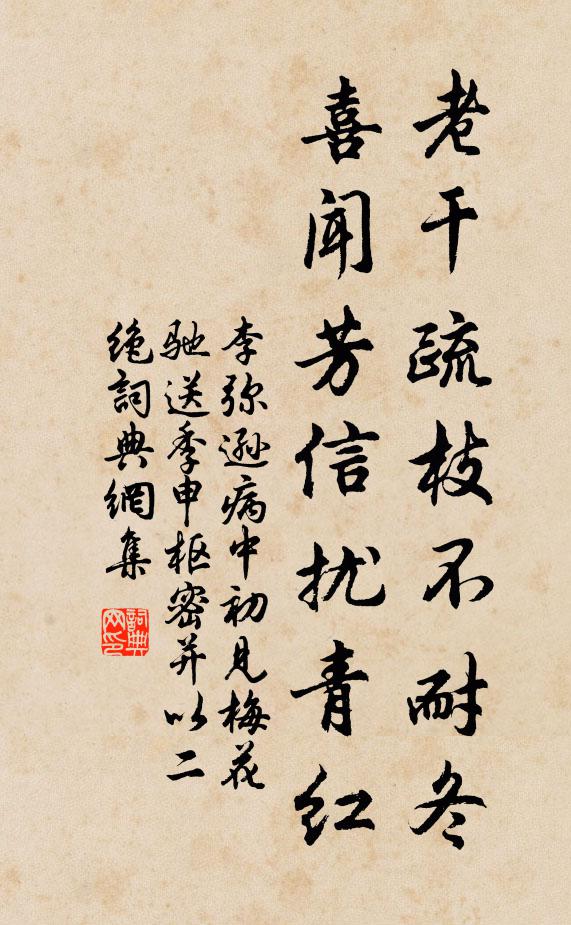 老干疏枝不耐冬
喜闻芳信扰青红
李弥逊病中初见梅花
驰送季申枢密并以二
绝詞典網集
詞典网印